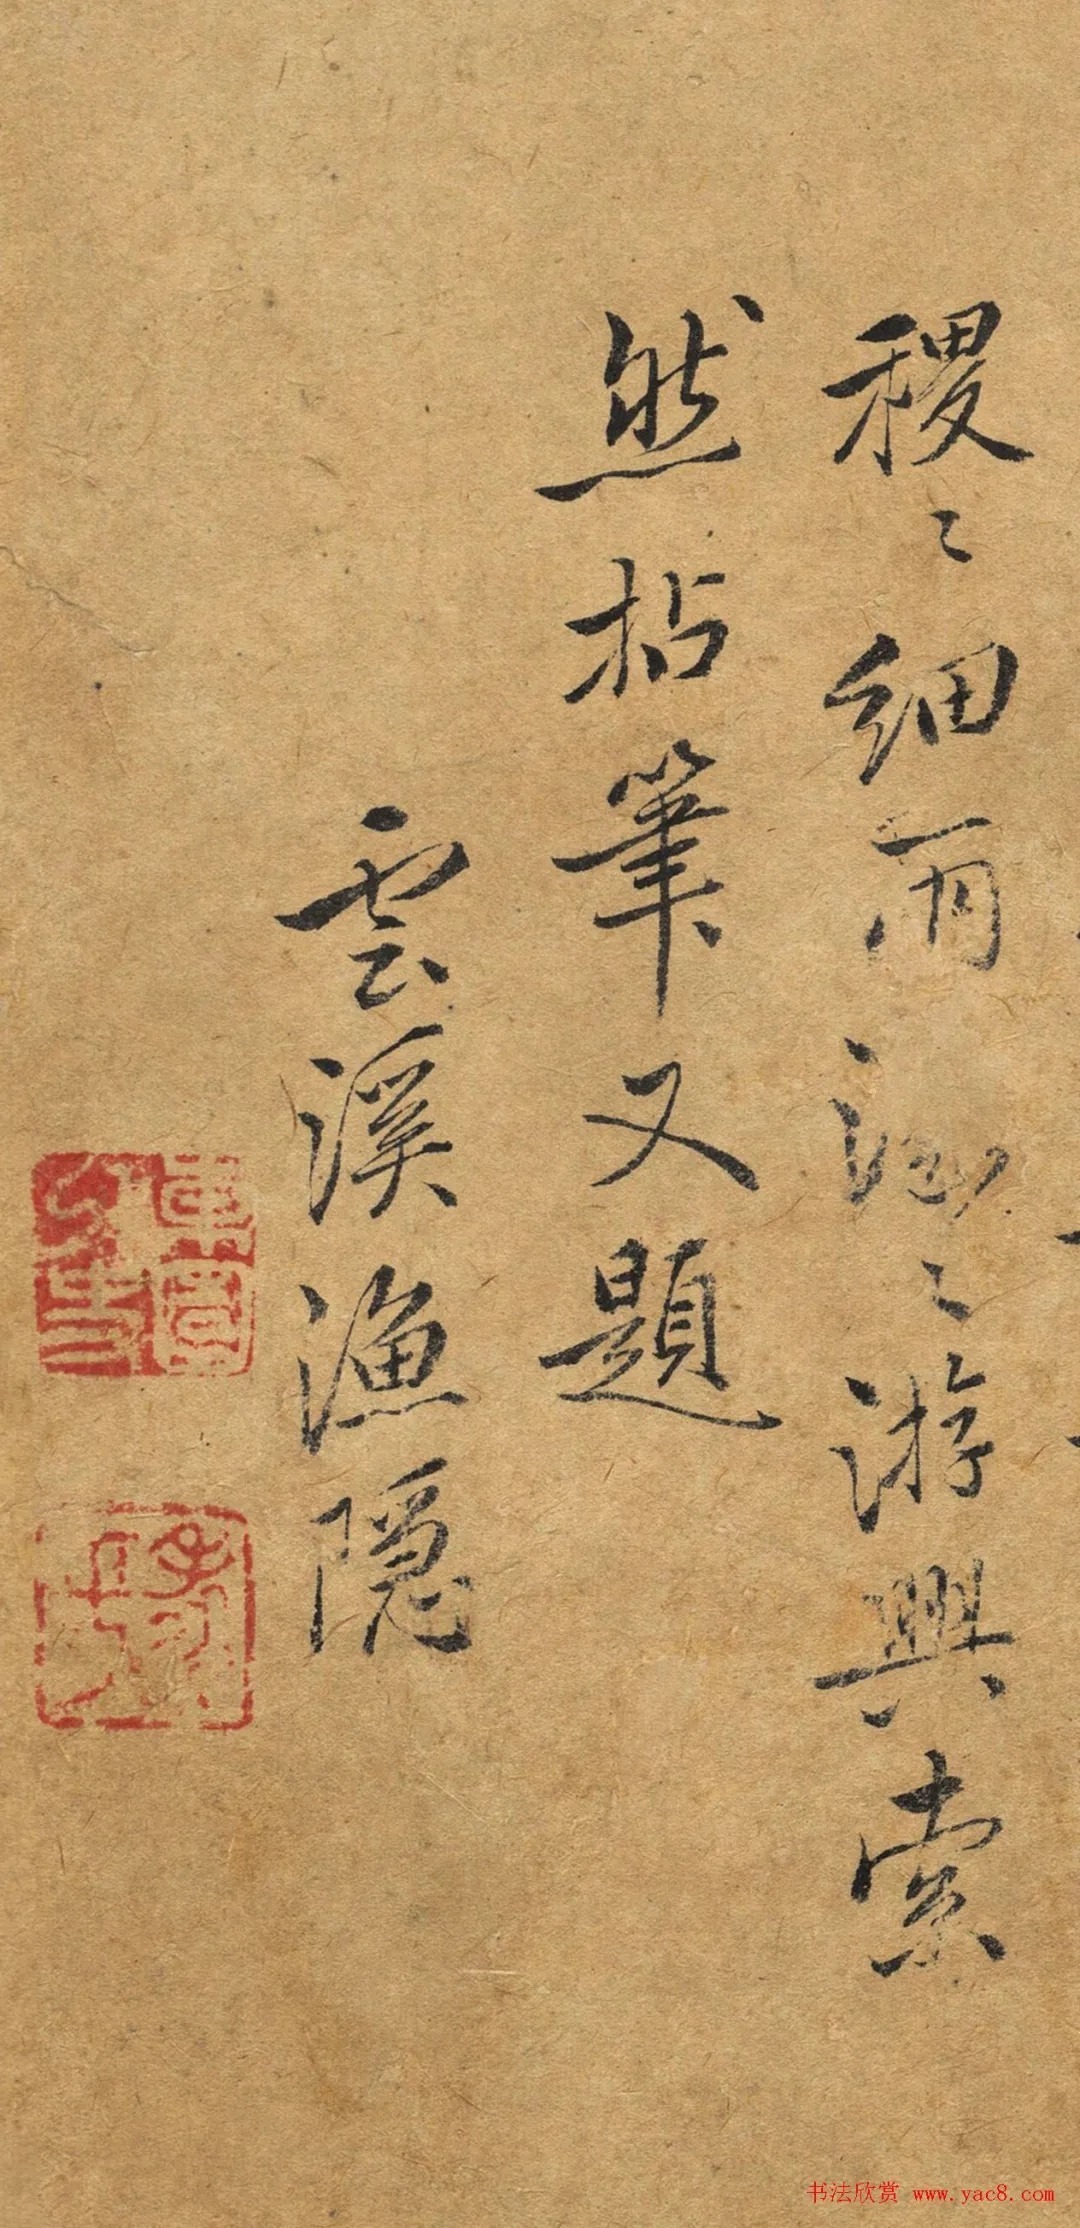 稷〻細雨〻游興索
然拈筆又題
雲溪漁隱
书法欣赏 www.yac8.com